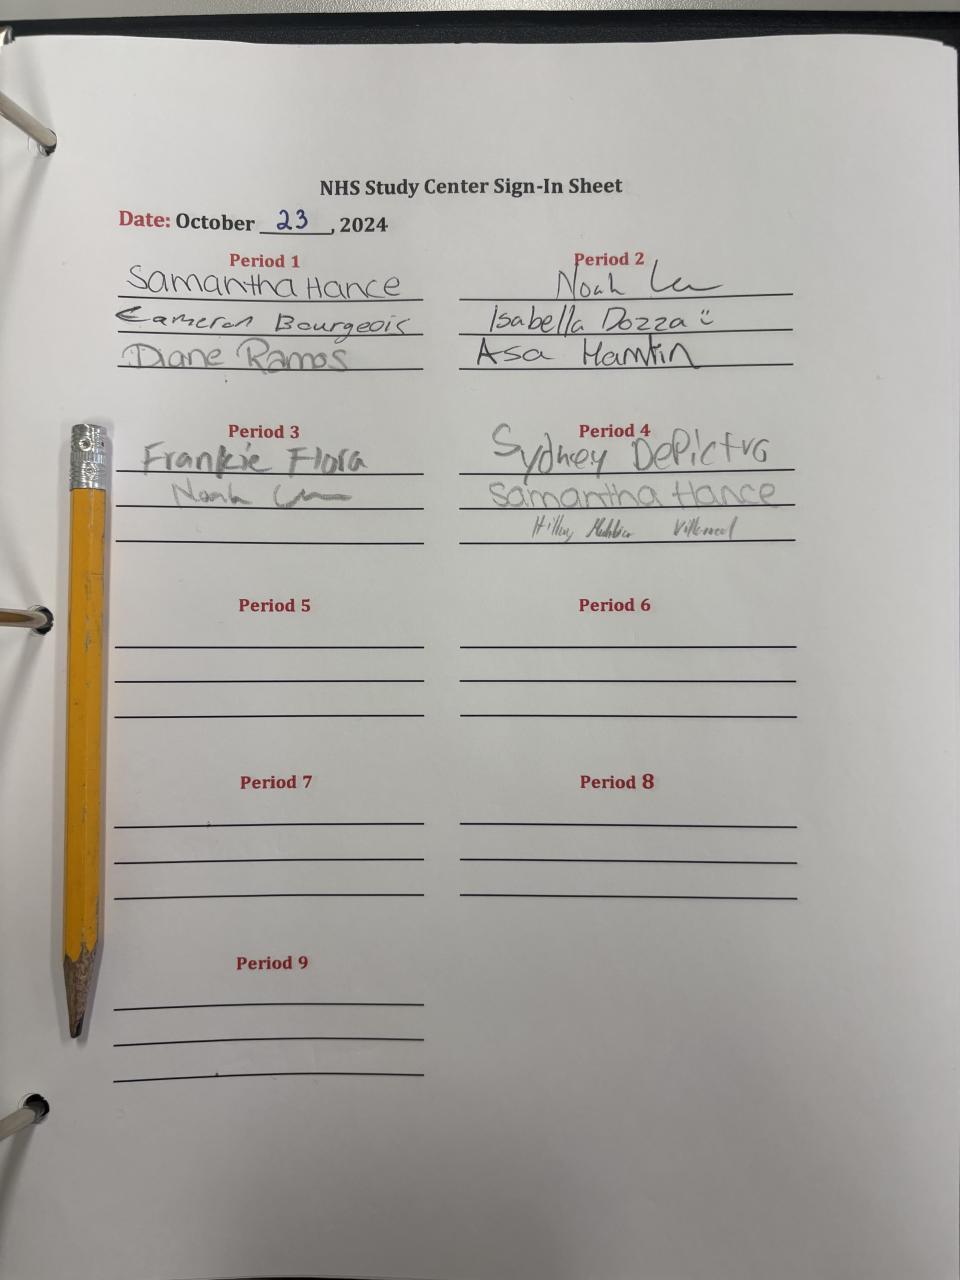 NHS Study Center Sign-In Sheet
Date: October 23, 2024
Period 1
Samantha Hance
Cameron Bourgeois
Diane Ramos
Period 2
Noah
Isabella Dozza :)
Asa
Period 3
Frankie Flora
Noah
Period 4
Sydney DePietro
Samantha Hance
Period 5
Period 6
Period 7
Period 8
Period 9